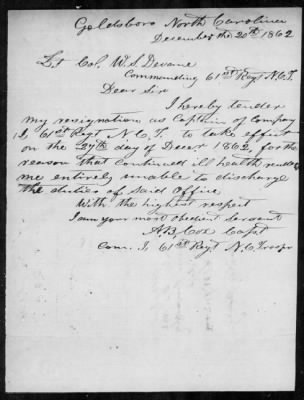 Goldsboro North Carolina
December the 20th 1862
Lt Col. W. S. Devane
Commanding 61st Regt N.C.T.
Dear Sir
I hereby tender
my resignation as Captain of Company
I, 61st Regt N.C.T. to take effect
on the 27th day of Decer 1862, for the
reason that continued ill health renders
me entirely unable to discharge
the duties of said office
With the highest respect
I am your most obedient servant
A. B. Cox Capt
Com. I, 61st Regt. N.C. Troops